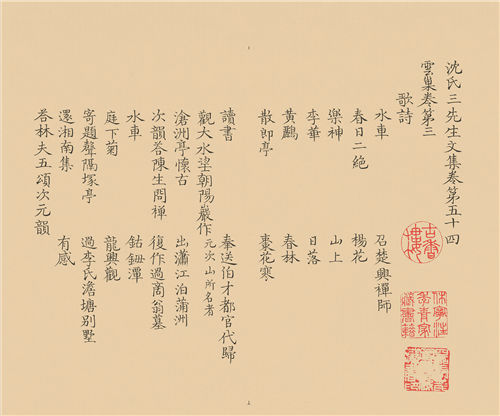 沈氏三先生文集卷第五十四
雲巢卷第三
歌詩
水車 召楚興禪師
春日二絶 楊花
樂神 山上
李華 日落
黄鸝 春林
散郎亭 棗花寒
讀書 奉送伯才都官代歸
觀大水望朝陽巖作元次山所名者
滄洲亭懷古 出瀟江泊蒲洲
次韻答陳生問禪 復作過商翁墓
水車 鈷鉧潭
庭下菊 龍興觀
寄題聲隔塚亭 過李氏澹塘别墅
還湘南集 有感
答林夫五頌次元韻
古香樓